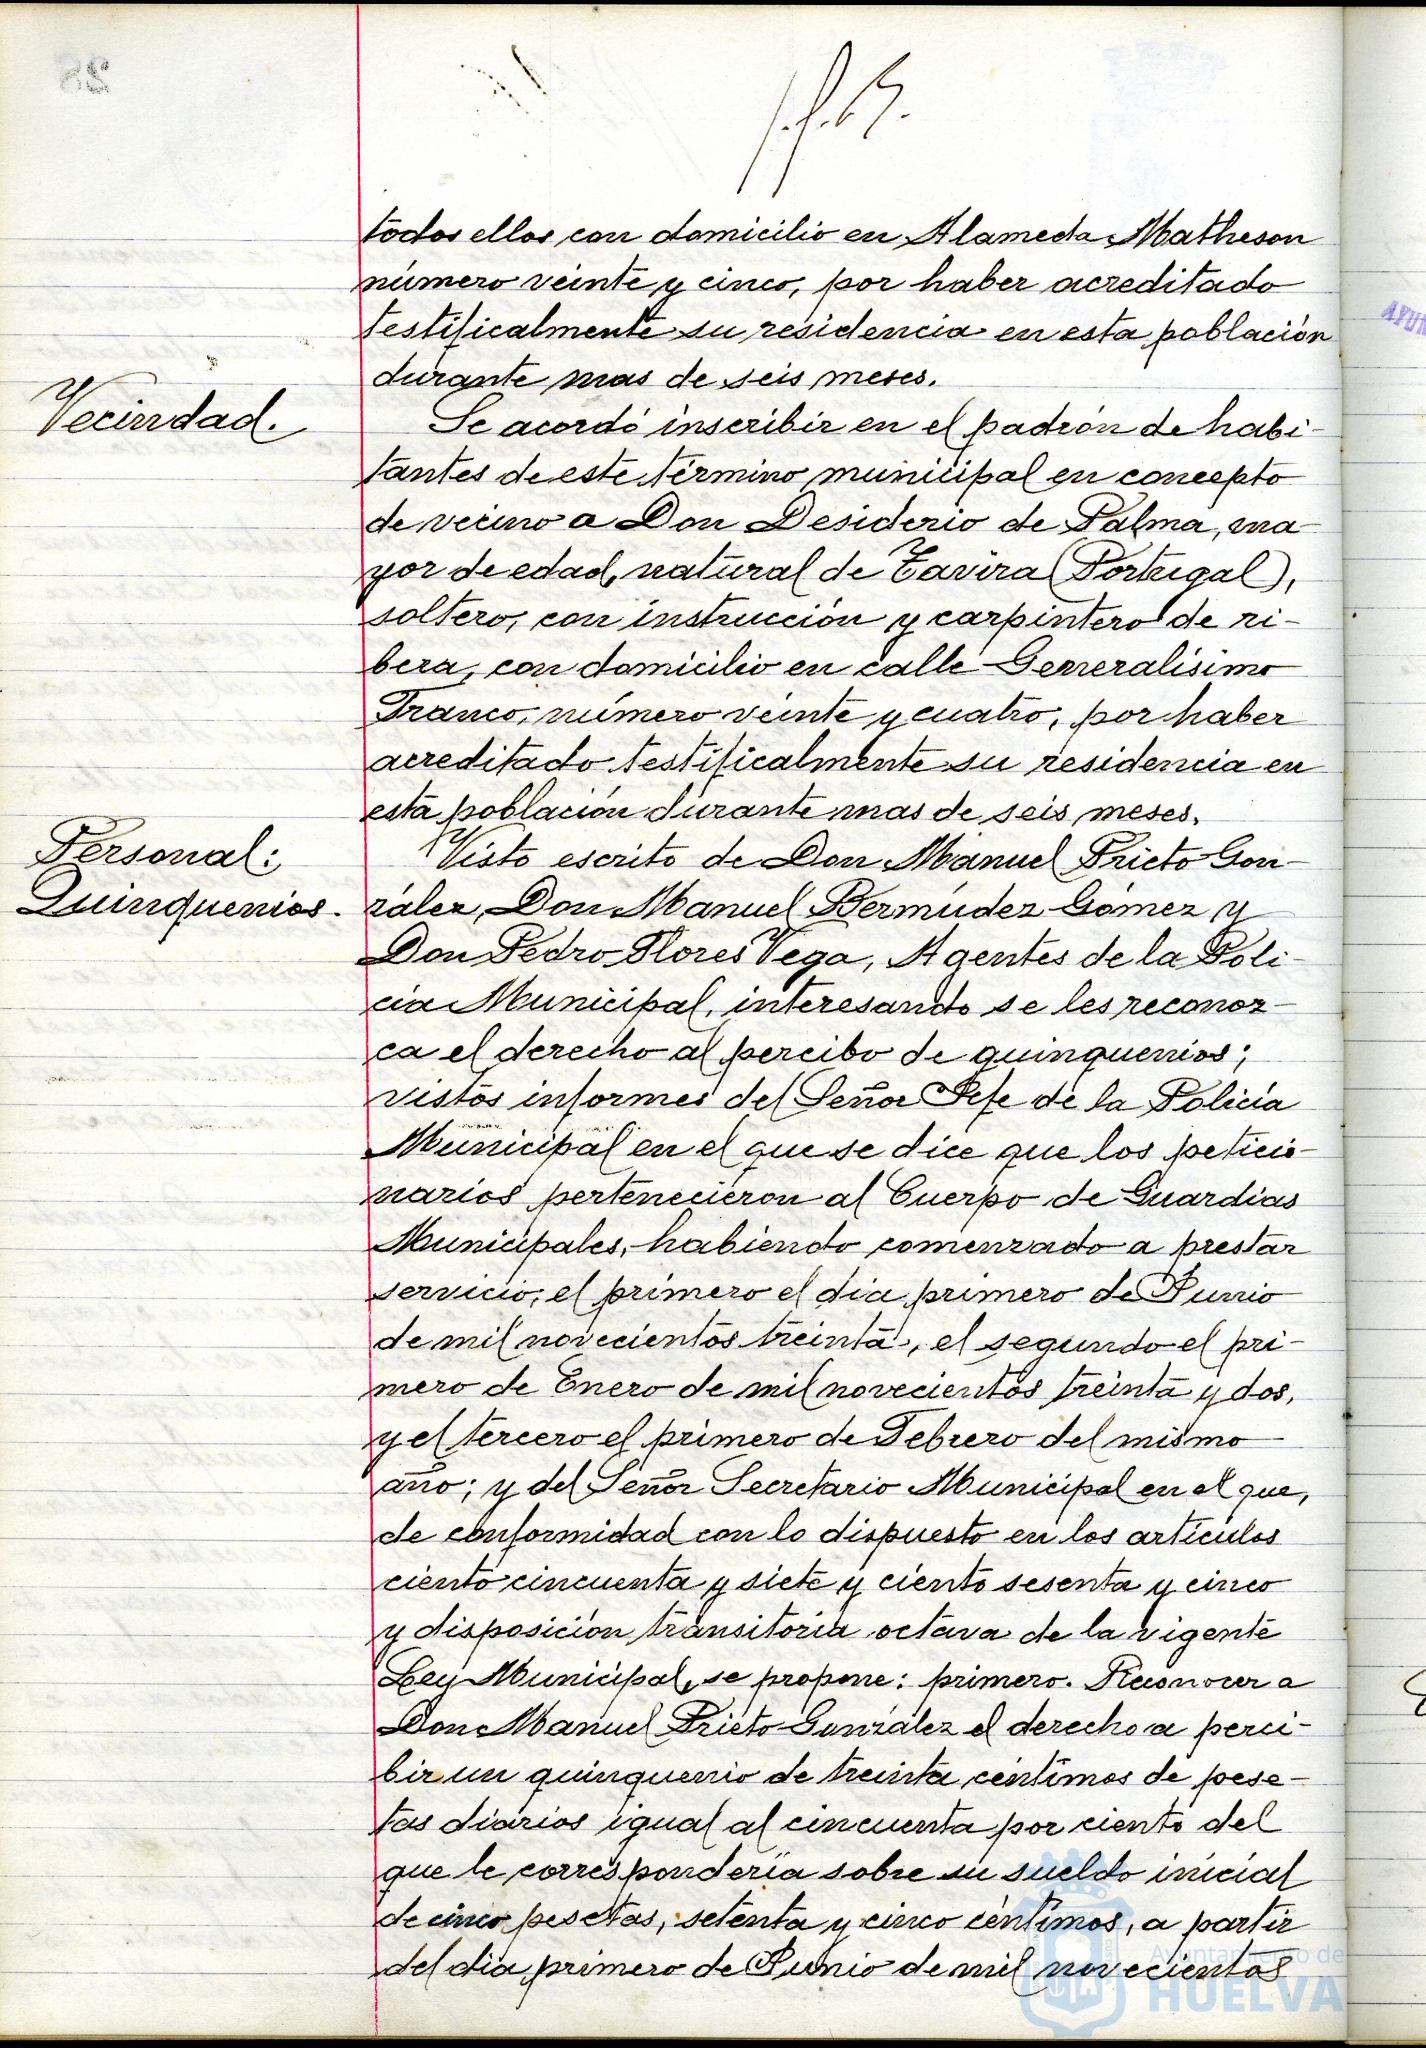 todos ellos con domicilio en Alameda Matheson
número veinte y cinco, por haber acreditado
testificalmente su residencia en esta población
durante mas de seis meses.
Vecindad.
Se acordó inscribir en el padrón de habi-
tantes de este término municipal en concepto
de vecino a Don Desiderio de Palma, ma-
yor de edad, natural de Tavira (Portugal),
soltero, con instrucción y carpintero de ri-
bera, con domicilio en calle Generalísimo
Franco, número veinte y cuatro, por haber
acreditado testificalmente su residencia en
esta población durante mas de seis meses.
Personal:
Quinquenios.
Visto escrito de Don Manuel Prieto Gon-
zález, Don Manuel Bermúdez Gómez y
Don Pedro Flores Vega, Agentes de la Poli-
cía Municipal, interesando se les reconoz-
ca el derecho al percibo de quinquenios;
vistos informes del Señor Jefe de la Policía
Municipal en el que se dice que los peticio-
narios pertenecieron al Cuerpo de Guardias
Municipales, habiendo comenzado a prestar
servicio, el primero el día primero de Junio
de mil novecientos treinta, el segundo el pri-
mero de Enero de mil novecientos treinta y dos,
y el tercero el primero de Febrero del mismo
año; y del Señor Secretario Municipal en el que,
de conformidad con lo dispuesto en los artículos
ciento cincuenta y siete y ciento sesenta y cinco
y disposición transitoria octava de la vigente
Ley Municipal, se propone: primero. Reconocer a
Don Manuel Prieto González el derecho a perci-
bir un quinquenio de treinta céntimos de pese-
tas diarios igual al cincuenta por ciento del
que le correspondería sobre su sueldo inicial
de cinco pesetas, setenta y cinco céntimos, a partir
del día primero de Junio de mil novecientos
Ayuntamiento de
HUELVA